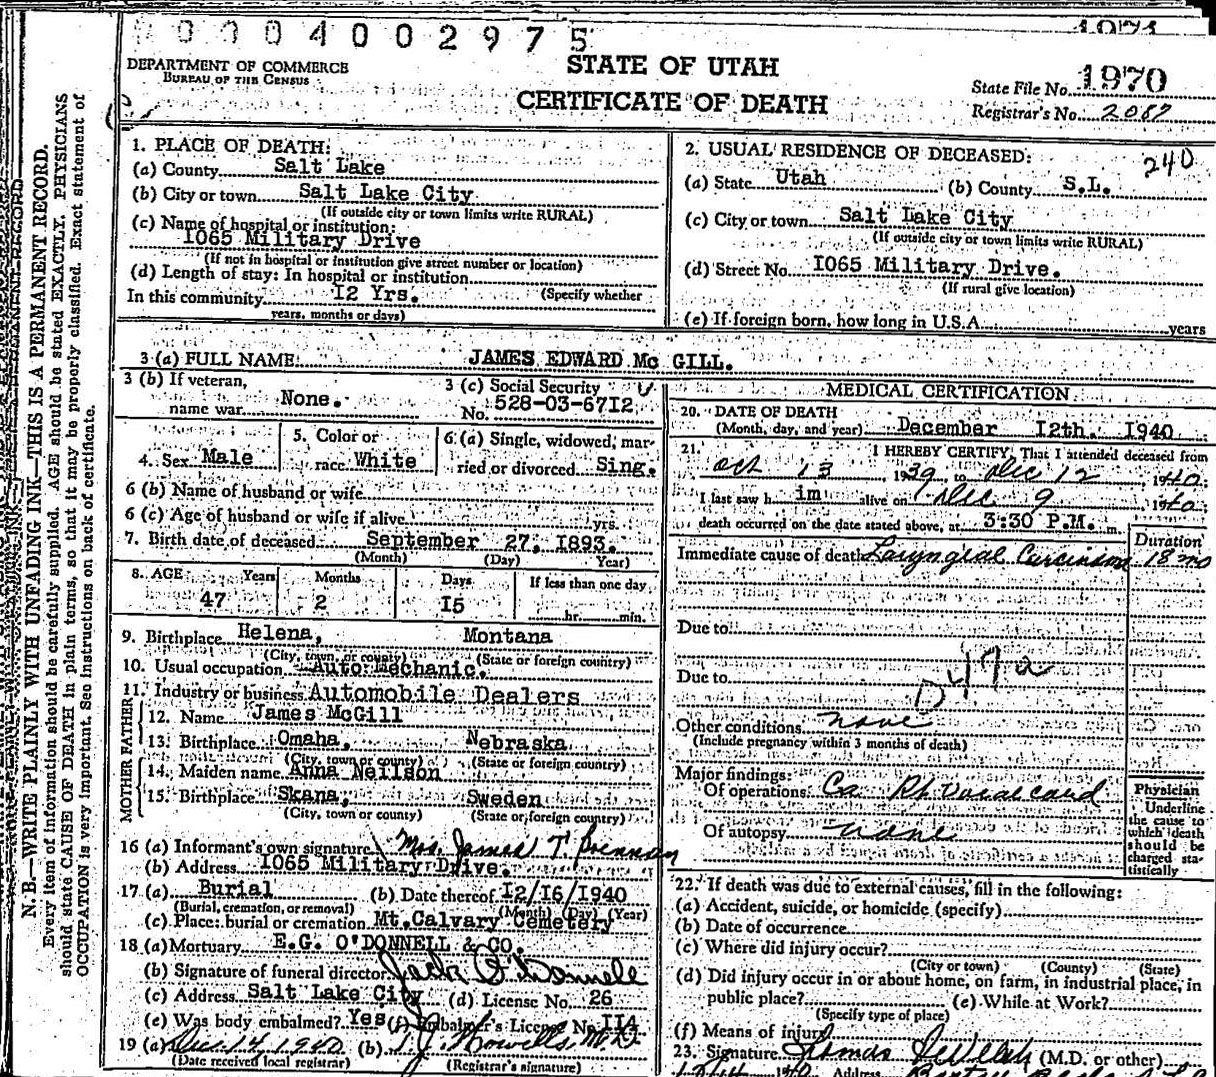 0004002975
1971
DEPARTMENT OF COMMERCE
BUREAU OF THE CENSUS
STATE OF UTAH
CERTIFICATE OF DEATH
State File No. 1970
Registrar's No. 2087
N. B.—WRITE PLAINLY WITH UNFADING INK—THIS IS A PERMANENT RECORD.
Every item of information should be carefully supplied. AGE should be stated EXACTLY. PHYSICIANS
should state CAUSE OF DEATH in plain terms, so that it may be properly classified. Exact statement of
OCCUPATION is very important. See instructions on back of certificate.
1. PLACE OF DEATH:
(a) County Salt Lake
(b) City or town Salt Lake City
(If outside city or town limits write RURAL)
(c) Name of hospital or institution:
1065 Military Drive
(If not in hospital or institution give street number or location)
(d) Length of stay: In hospital or institution
In this community 12 Yrs. (Specify whether
years, months or days)
2. USUAL RESIDENCE OF DECEASED: 240
(a) State Utah (b) County S.L.
(c) City or town Salt Lake City
(If outside city or town limits write RURAL)
(d) Street No. 1065 Military Drive.
(If rural give location)
(e) If foreign born, how long in U.S.A. years
3 (a) FULL NAME JAMES EDWARD Mc GILL.
3 (b) If veteran,
name war None.
3 (c) Social Security
No. 528-03-6712
4. Sex Male
5. Color or
race White
6 (a) Single, widowed, mar-
ried or divorced Sing.
6 (b) Name of husband or wife
6 (c) Age of husband or wife if alive yrs.
7. Birth date of deceased September 27, 1893.
(Month) (Day) Year)
8. AGE Years Months Days If less than one day
47 2 15 hr. min.
9. Birthplace Helena, Montana
(City, town or county) (State or foreign country)
10. Usual occupation Auto Mechanic.
11. Industry or business Automobile Dealers
FATHER
12. Name James McGill
13. Birthplace Omaha, Nebraska
(City, town or county) (State or foreign country)
MOTHER
14. Maiden name Anna Neilson
15. Birthplace Skana, Sweden
(City, town or county) (State or foreign country)
16 (a) Informant's own signature Mrs. James T. Brennan
(b) Address 1065 Military Drive.
17 (a) Burial (b) Date thereof 12/16/1940
(Burial, cremation, or removal) (Month) (Day) (Year)
(c) Place: burial or cremation Mt. Calvary Cemetery
18 (a) Mortuary E.G. O'DONNELL & CO.
(b) Signature of funeral director Jack O'Donnell
(c) Address Salt Lake City (d) License No. 26
(e) Was body embalmed? Yes (f) Embalmer's License No.
19 (a) Dec. 14 1940 (b) T. J. Howells, M.D.
(Date received local registrar) (Registrar's signature)
MEDICAL CERTIFICATION
20. DATE OF DEATH
(Month, day, and year) December 12th. 1940
21. I HEREBY CERTIFY, That I attended deceased from
Oct 13, 1939, to Dec 12, 1940;
I last saw him alive on Dec 9, 1940;
death occurred on the date stated above, at 3:30 P.M. m.
Duration
Immediate cause of death Laryngial Carcinoma 18 mo
Due to
Due to
D 47a
Other conditions none
(Include pregnancy within 3 months of death)
Major findings:
Of operations Ca Rh vocal cord
Of autopsy none
Physician
Underline
the cause to
which death
should be
charged sta-
tistically
22. If death was due to external causes, fill in the following:
(a) Accident, suicide, or homicide (specify)
(b) Date of occurrence
(c) Where did injury occur?
(City or town) (County) (State)
(d) Did injury occur in or about home, on farm, in industrial place, in
public place? (e) While at Work?
(Specify type of place)
(f) Means of injury
23. Signature Thomas (M.D. or other)
Address